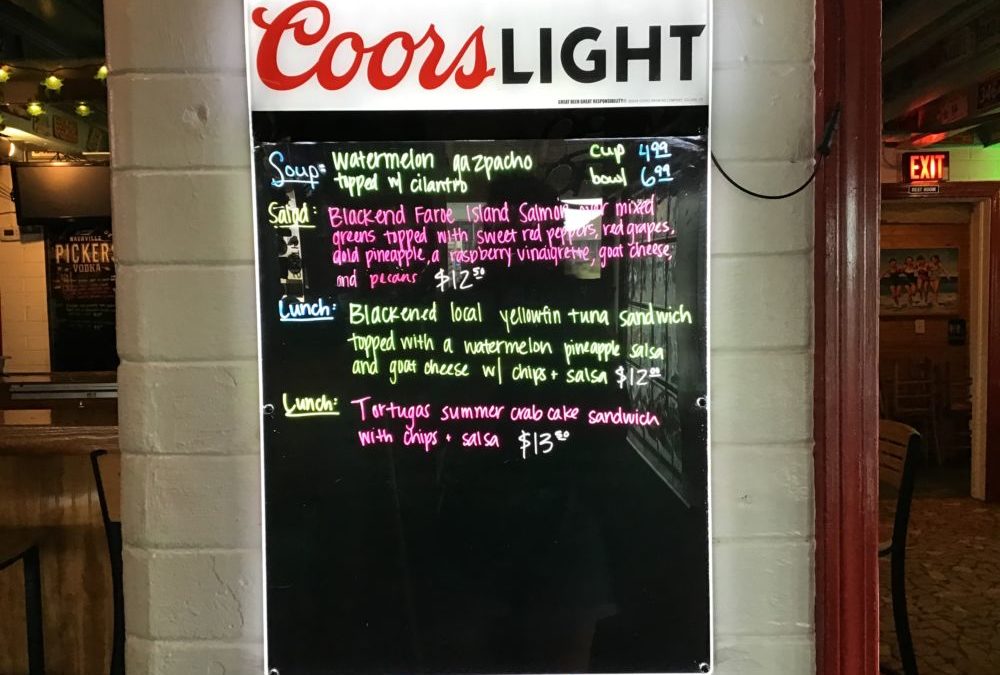 Coors LIGHT
GREAT BEER GREAT RESPONSIBILITY
Soup: watermelon gazpacho cup 4.99
topped w/ cilantro bowl 6.99
Salad: Blackend Faroe Island Salmon over mixed
greens topped with sweet red peppers, red grapes,
gold pineapple, a raspberry vinaigrette, goat cheese,
and pecans $12.50
Lunch: Blackened local yellowfin tuna sandwich
topped with a watermelon pineapple salsa
and goat cheese w/ chips + salsa $12.00
Lunch: Tortugas summer crab cake sandwich
with chips + salsa $13.50
NASHVILLE
PICKERS
VODKA
EXIT